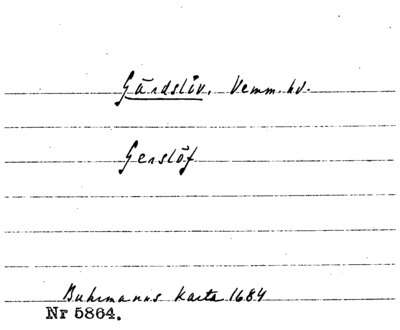 Gärdslöv, Vemm. hd.
Gerslöf
Buhrmanns Karta 1684
Nr 5864.